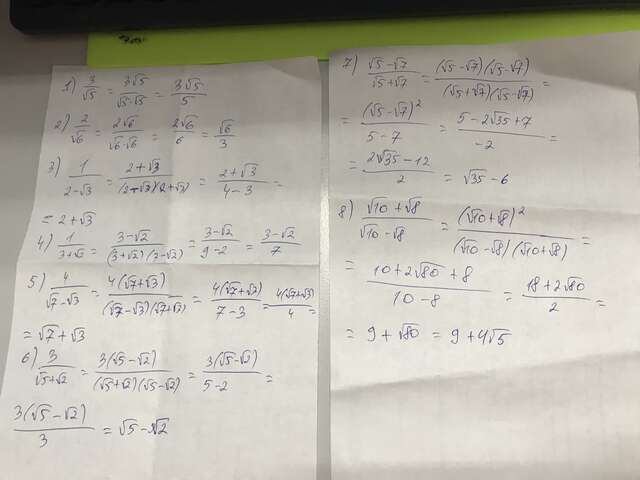 1) 3/√5 = 3√5/√5·√5 = 3√5/5
2) 2/√6 = 2√6/√6·√6 = 2√6/6 = √6/3
3) 1/2-√3 = 2+√3/(2-√3)(2+√3) = 2+√3/4-3 =
= 2+√3
4) 1/3+√2 = 3-√2/(3+√2)(3-√2) = 3-√2/9-2 = 3-√2/7
5) 4/√7-√3 = 4(√7+√3)/(√7-√3)(√7+√3) = 4(√7+√3)/7-3 = 4(√7+√3)/4 =
= √7+√3
6) 3/√5+√2 = 3(√5-√2)/(√5+√2)(√5-√2) = 3(√5-√2)/5-2 =
3(√5-√2)/3 = √5-√2
7) √5-√7/√5+√7 = (√5-√7)(√5-√7)/(√5+√7)(√5-√7) =
(√5-√7)²/5-7 = 5-2√35+7/-2 =
= 2√35-12/2 = √35-6
8) √10+√8/√10-√8 = (√10+√8)²/(√10-√8)(√10+√8) =
= 10+2√80+8/10-8 = 18+2√80/2 =
= 9+√80 = 9+4√5